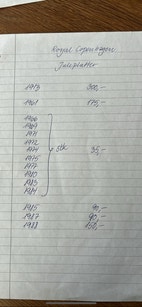 Royal Copenhagen
Juleplatter
1913 300,-
1961 175,-
1966
1969
1971
1972
1974
1975
1977
1980
1983
1984
stk 35,-
1985 90,-
1987 90,-
1988 150,-